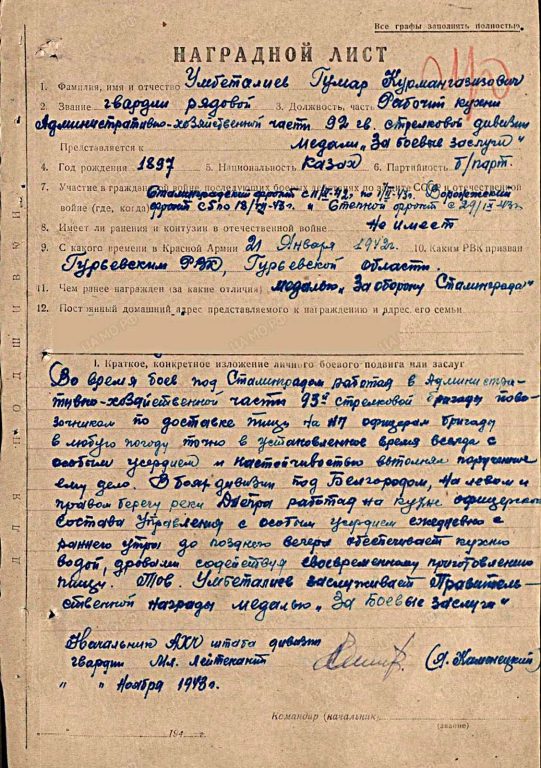 Все графы заполнять полностью.
НАГРАДНОЙ ЛИСТ
1. Фамилия, имя и отчество Умбеталиев Гумар Курмангазизович
2. Звание гвардии рядовой 3. Должность, часть Рабочий кухни
Административно-хозяйственной части 92 гв. стрелковой дивизии
Представляется к медали „За боевые заслуги"
4. Год рождения 1897 5. Национальность казах 6. Партийность б/парт
7. Участие в гражданской войне, последующих боевых действиях по защите СССР и отечественной
войне (где, когда) Сталинградский фронт Воронежский
фронт с 5 по 18/VII-43г. и Степной фронт с
8. Имеет ли ранения и контузии в отечественной войне Не имеет
9. С какого времени в Красной Армии 21 Января 1942г. 10. Каким РВК призван
Гурьевским РВК, Гурьевской области.
11. Чем ранее награжден (за какие отличия) Медалью „За оборону Сталинграда"
12. Постоянный домашний адрес представляемого к награждению и адрес его семьи
ДЛЯ ПОДШИВКИ
I. Краткое, конкретное изложение личного боевого подвига или заслуг
Во время боев под Сталинградом работал в Администра-
тивно-хозяйственной части 93й стрелковой бригады пово-
зочником по доставке пищи на НП офицерам бригады
в любую погоду точно в установленное время всегда с
особым усердием и настойчивостью выполнял порученное
ему дело. В боях дивизии под Белгородом, на левом и
правом берегу реки Днепра работал на кухне офицерского
состава Управления с особым усердием ежедневно с
раннего утра до позднего вечера обеспечивает кухню
водой, дровами содействуя своевременному приготовлению
пищи. Тов. Умбеталиев заслуживает Правитель-
ственной награды медалью „За Боевые заслуги"
Начальник АХЧ штаба дивизии
гвардии Мл. Лейтенант (Я. Каменецкий)
" " Ноября 1943г.
Командир (начальник)
(звание)
194 г.